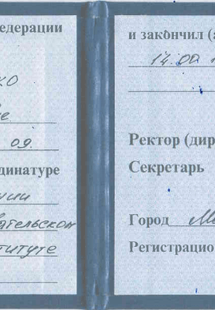 едерации
ко
09.
динатуре
ательском
ституте
и закончил (а
14.00
Ректор (дир
Секретарь
Город М
Регистрацио